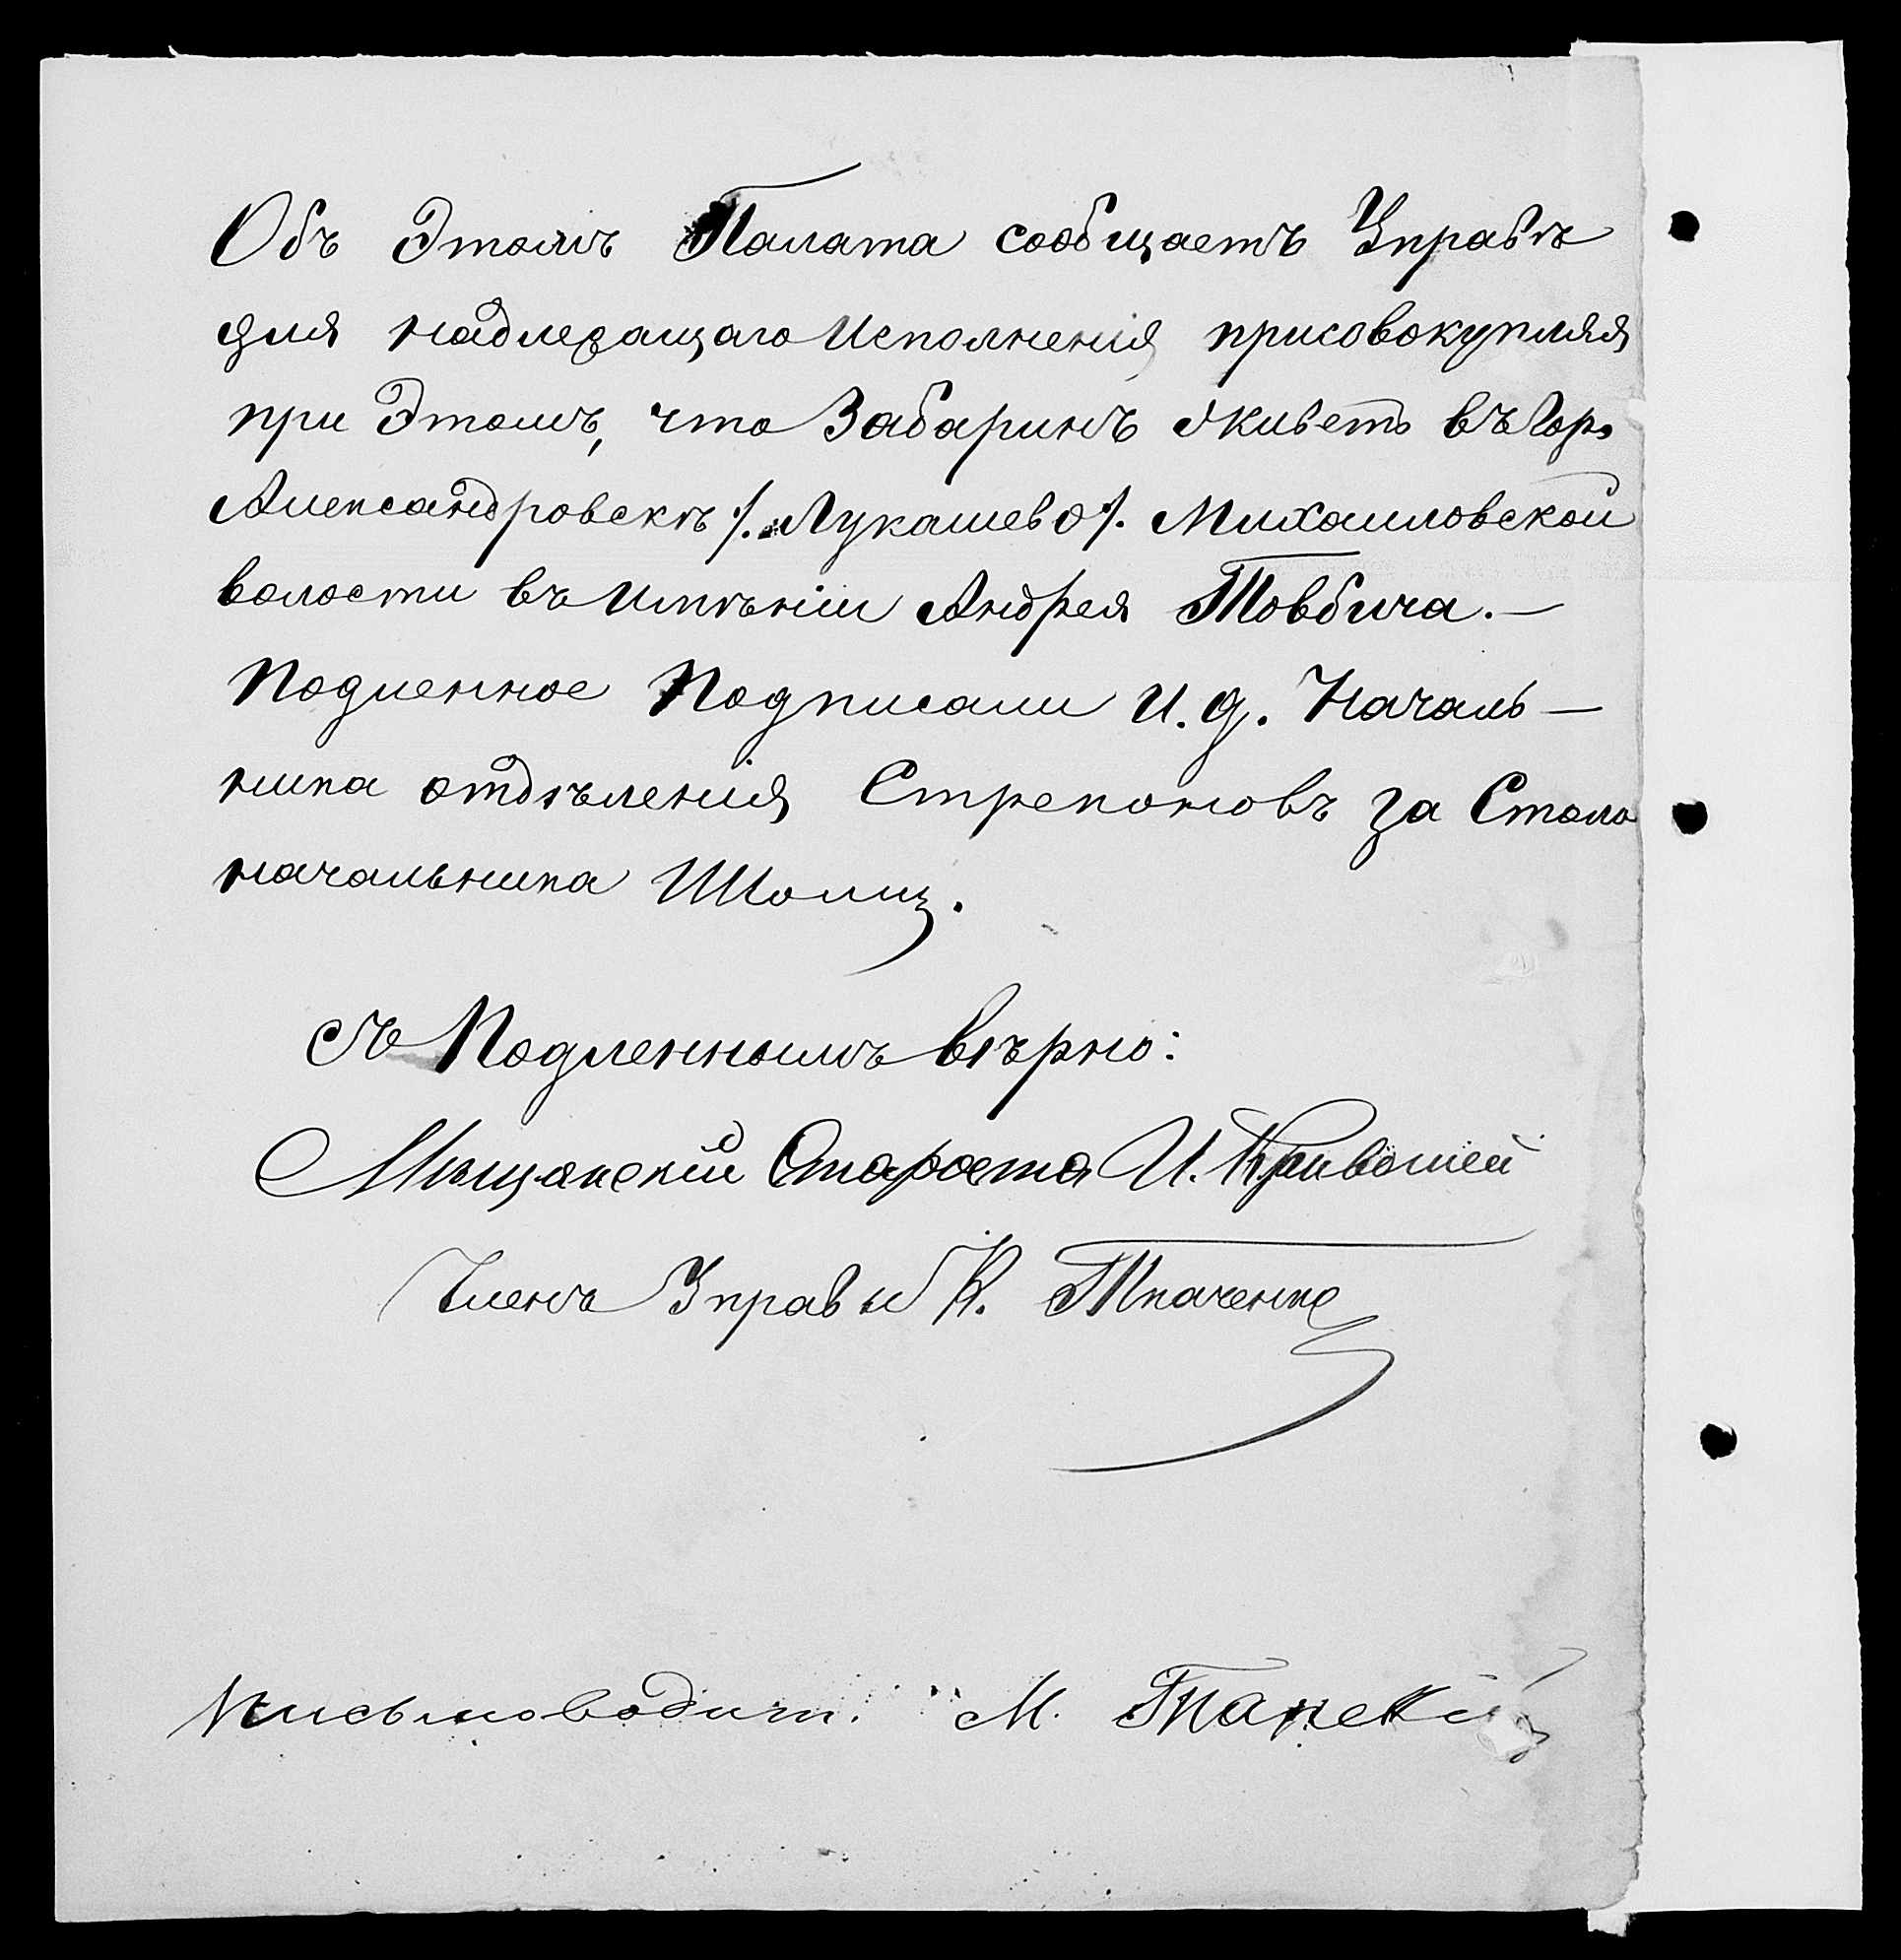 Объ Этомъ Палата сообщаетъ Управѣ
для надлежащаго Исполненія присовокупляя
при Этомъ, что Забаринъ живетъ въ Гор.
Александровскѣ /. Лукашево /. Михаиловской
волости въ имѣніи Андрея Товбича. —
Подленное Подписали И. д. Началь —
ника отдѣленія Стрепоновъ за Столо
начальника Шолиц.
съ Подленнымъ вѣрно:
Мѣщанскій Староста И. Кривошей
Членъ Управы К. Ткаченко
Письмоводит. М.